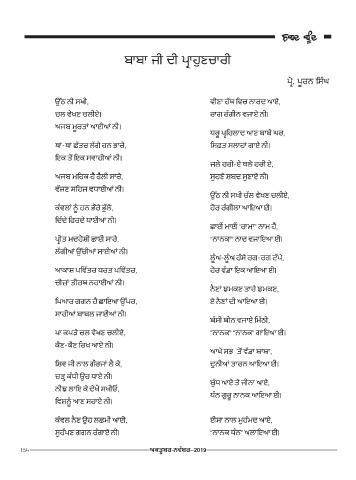 ਸ਼ਬਦ ਬੂੰਦ
ਬਾਬਾ ਜੀ ਦੀ ਪ੍ਰਾਹੁਣਚਾਰੀ
ਪ੍ਰੋ. ਪੂਰਨ ਸਿੰਘ
ਉੱਠ ਨੀ ਸਖੀ,
ਚਲ ਵੇਖਣ ਚਲੀਏ।
ਅਜਬ ਮੂਰਤਾਂ ਆਈਆਂ ਨੀ।
ਥਾਂ-ਥਾਂ ਛਤਰ ਲੱਗੇ ਹਨ ਭਾਰੇ,
ਇਕ ਤੋਂ ਇਕ ਸਵਾਈਆਂ ਨੀ।
ਅਜਬ ਮਹਿਕ ਹੈ ਫੈਲੀ ਸਾਰੇ,
ਵੱਜਣ ਸਹਿਜ ਵਧਾਈਆਂ ਨੀ।
ਕੰਵਲਾਂ ਨੂੰ ਹਨ ਭੌਰੇ ਭੁੱਲੇ,
ਦਿੰਦੇ ਫਿਰਦੇ ਧਾਈਆਂ ਨੀ।
ਪ੍ਰੀਤ ਮਦਹੋਸ਼ੀ ਛਾਈ ਸਾਰੇ,
ਲੱਗੀਆਂ ਉੱਚੀਆਂ ਸਾਈਆਂ ਨੀ।
ਆਕਾਸ਼ ਪਵਿੱਤਰ ਧਰਤ ਪਵਿੱਤਰ,
ਚੀਜਾਂ ਤੀਰਥ ਨਹਾਈਆਂ ਨੀ।
ਪਿਆਰ ਗਗਨ ਹੈ ਛਾਇਆ ਉੱਪਰ,
ਸਾਰੀਆਂ ਬਾਬਲ ਜਾਈਆਂ ਨੀ।
ਪਾ ਕਪੜੇ ਚਲ ਵੇਖਣ ਚਲੀਏ,
ਕੌਣ-ਕੌਣ ਰਿਖ ਆਏ ਨੀ।
ਸ਼ਿਵ ਜੀ ਨਾਲ ਗੰਗਜਾਂ ਲੈ ਕੇ,
ਚੜ੍ਹ ਕੰਧੀ ਉਚ ਧਾਏ ਨੀ।
ਨੀਝ ਲਾਇ ਕੇ ਦੇਖੋ ਸਖੀਓ,
ਵਿਸ਼ਨੂੰ ਆਣ ਸਹਾਏ ਨੀ।
ਕੰਵਲ ਨੈਣ ਉਹ ਲਛਮੀ ਆਈ,
ਸੁਹੱਪਣ ਗਗਨ ਰੰਗਾਏ ਨੀ।
ਵੀਣਾ ਹੱਥ ਵਿਚ ਨਾਰਦ ਆਏ,
ਰਾਗ ਰੰਗੀਨ ਵਜਾਏ ਨੀ।
ਧਰੂ ਪ੍ਰਹਿਲਾਦ ਆਣ ਬਾਬੇ ਘਰ,
ਸਿਫ਼ਤ ਸਲਾਹਾਂ ਗਾਏ ਨੀ।
ਜਲੇ ਹਰੀ-ਏ ਥਲੇ ਹਰੀ ਏ,
ਸੁਹਣੇ ਸ਼ਬਦ ਸੁਣਾਏ ਨੀ।
ਉੱਠ ਨੀ ਸਖੀ ਚੱਲ ਵੇਖਣ ਚਲੀਏ,
ਹੋਰ ਰੰਗੀਲਾ ਆਇਆ ਈ।
ਛਾਈਂ ਮਾਈਂ "ਰਾਮਾ" ਨਾਮ ਹੈ,
"ਨਾਨਕਾ" ਨਾਦ ਵਜਾਇਆ ਈ।
ਲੂੰਅ-ਲੂੰਅ ਹੱਸੇ ਰਗ-ਰਗ ਟੱਪੇ,
ਹੋਰ ਵੱਡਾ ਇਕ ਆਇਆ ਈ।
ਨੈਣਾਂ ਝਮਕਣ ਤਾਰੇ ਝਮਕਣ,
ਏ ਨੈਣਾਂ ਦੀ ਆਇਆ ਈ।
ਬੰਸੀ ਬੀਨ ਵਜਾਏ ਮਿੱਠੀ,
"ਨਾਨਕ" "ਨਾਨਕ" ਗਾਇਆ ਈ।
ਆਖੇ ਸਭ ਤੋਂ ਵੱਡਾ ਬਾਬਾ,
ਦੁਨੀਆਂ ਤਾਰਨ ਆਇਆ ਈ।
ਬੁੱਧ ਆਏ ਤੇ ਜੀਨਾ ਆਏ,
ਧੰਨ ਗੁਰੂ ਨਾਨਕ ਆਇਆ ਈ।
ਈਸਾ ਨਾਲ ਮੁਹੰਮਦ ਆਏ,
"ਨਾਨਕ ਧੰਨ" ਅਲਾਇਆ ਈ।
ਅਕਤੂਬਰ-ਨਵੰਬਰ-2019